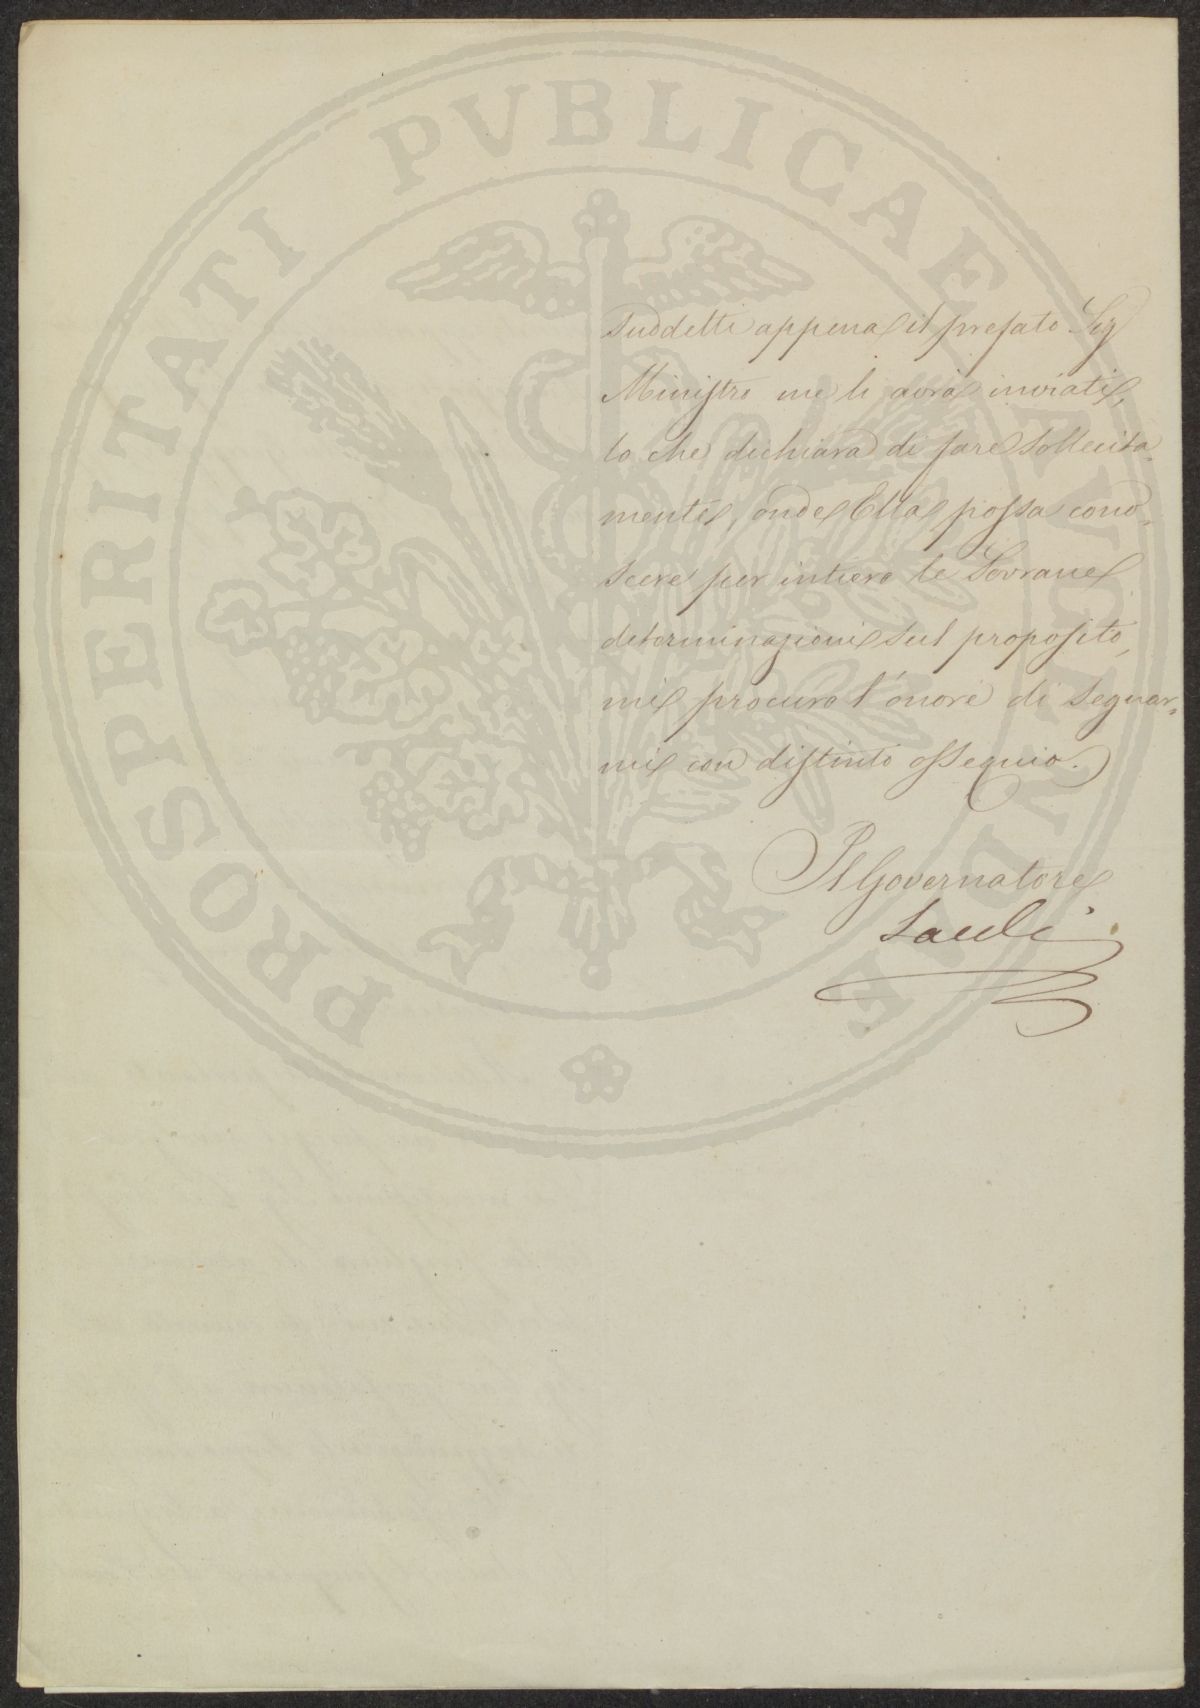 PROSPERITATI PVBLICAE AVGENDAE
suddetti appena il prefato Sig
Ministro me li avrà inviati,
lo che dichiara di fare sollecita-
mente, onde Ella possa cono-
scere per intiero le Sovrane
determinazioni sul proposito,
mi procuro l'onore di segnar-
mi con distinto ossequio.
Il Governatore
Sauli